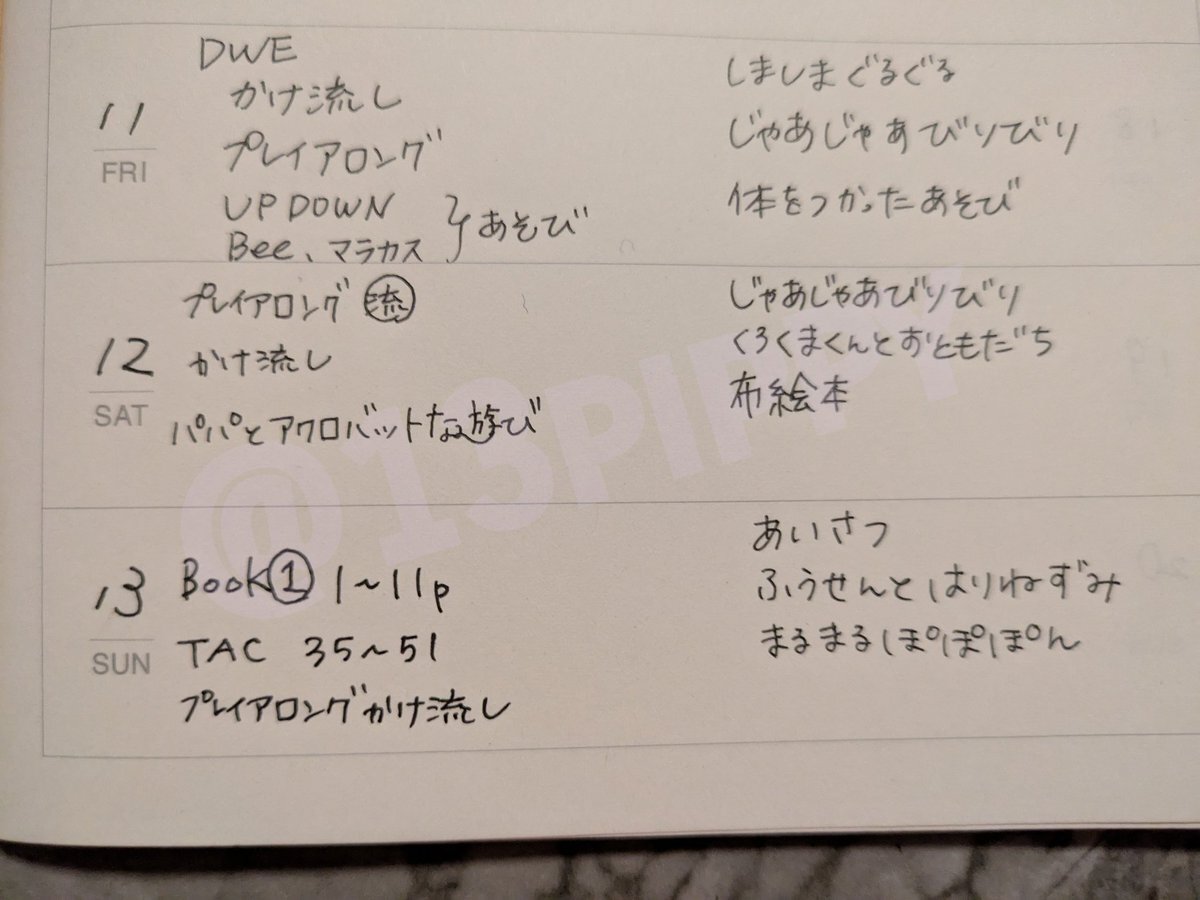 11
FRI
DWE
かけ流し
プレイアロング
UP DOWN
Bee、マラカス
}あそび
しましまぐるぐる
じゃあじゃあびりびり
体をつかったあそび
12
SAT
プレイアロング 流
かけ流し
パパとアクロバットな遊び
じゃあじゃあびりびり
くろくまくんとおともだち
布絵本
13
SUN
Book① 1~11p
TAC 35~51
プレイアロングかけ流し
あいさつ
ふうせんとはりねずみ
まるまるぽぽぽん
@13PIPPY